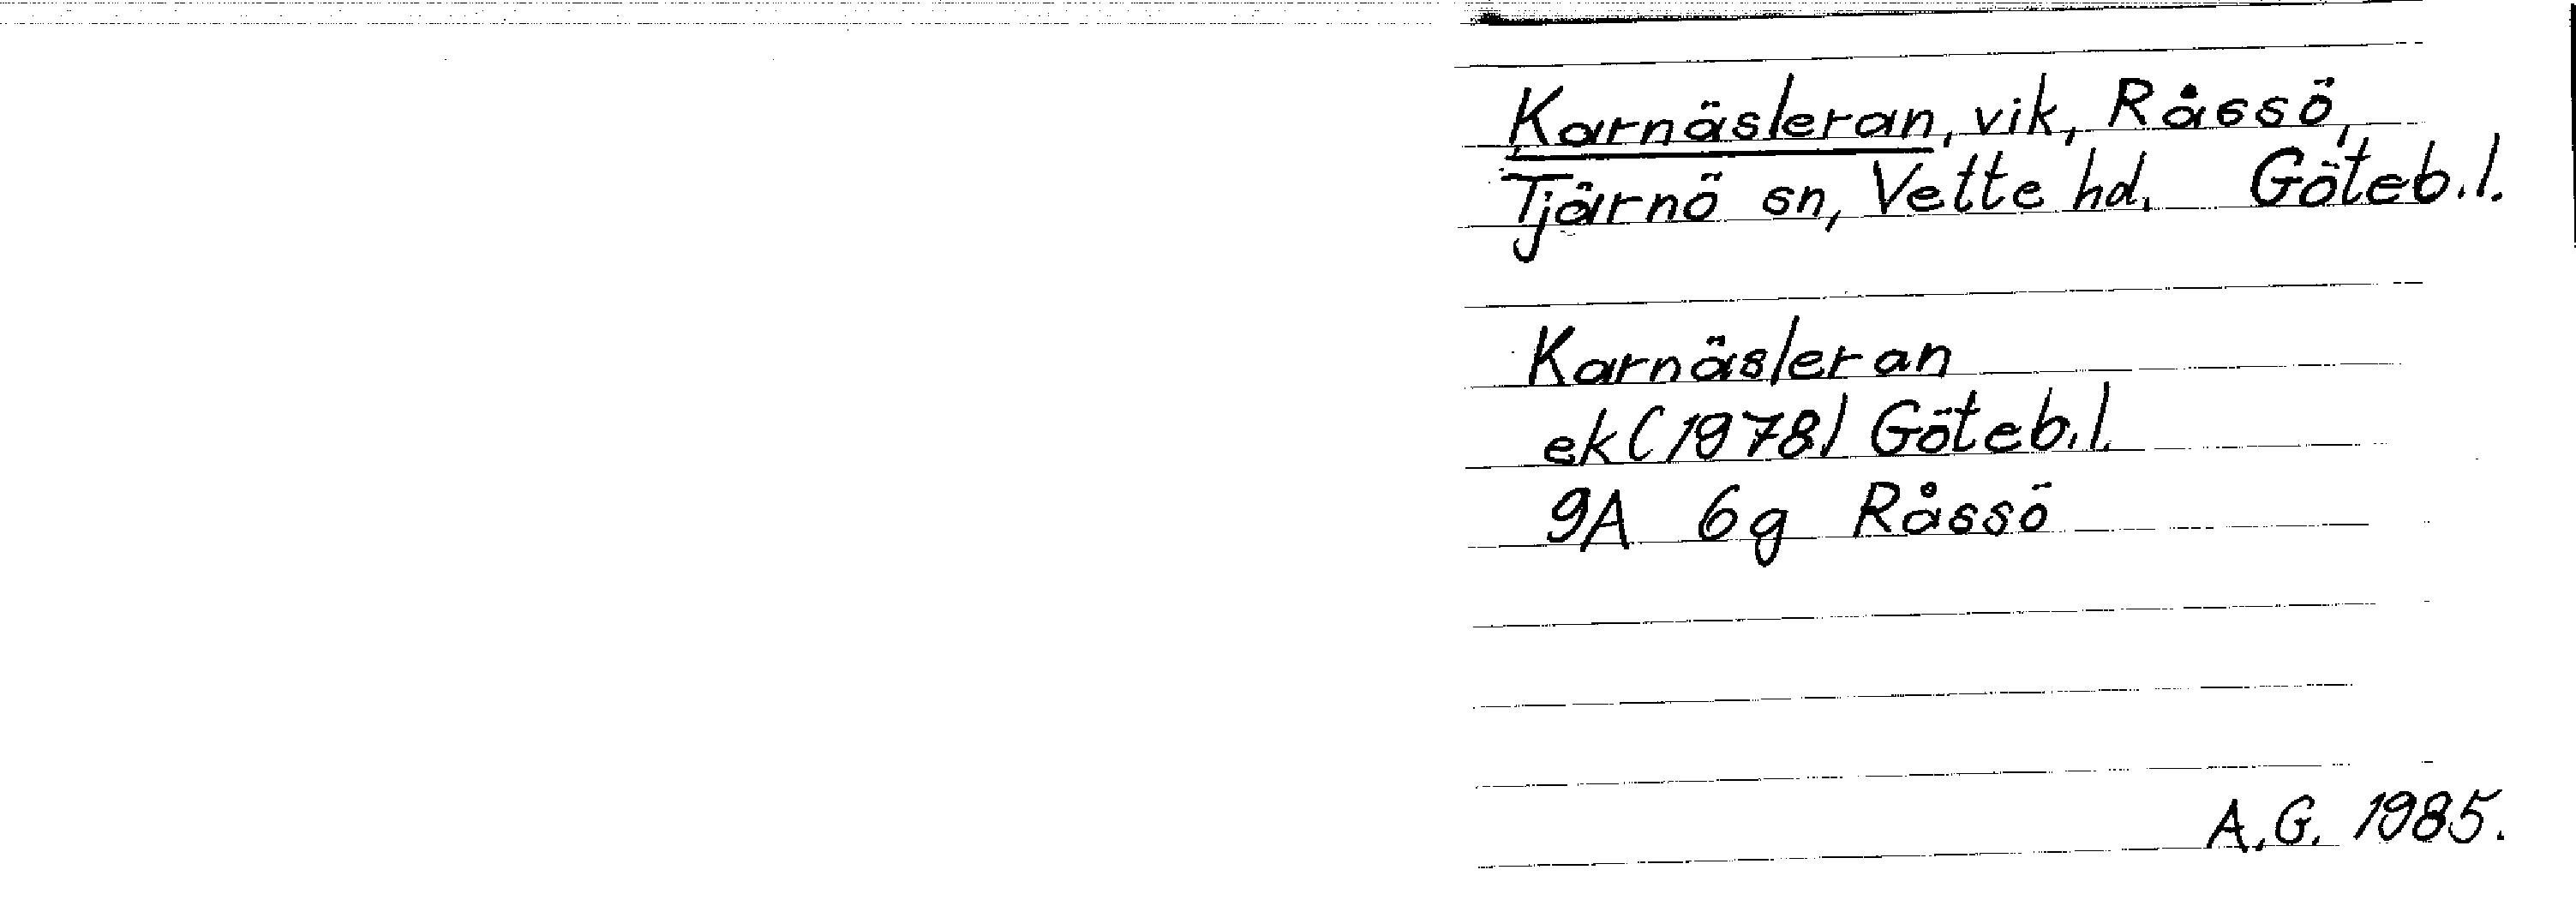 Karnäsleran, vik, Råssö,
Tjärnö sn, Vette hd. Göteb.l.
Karnäsleran
ek (1978) Göteb.l.
9A 6g Råssö
A.G. 1985.